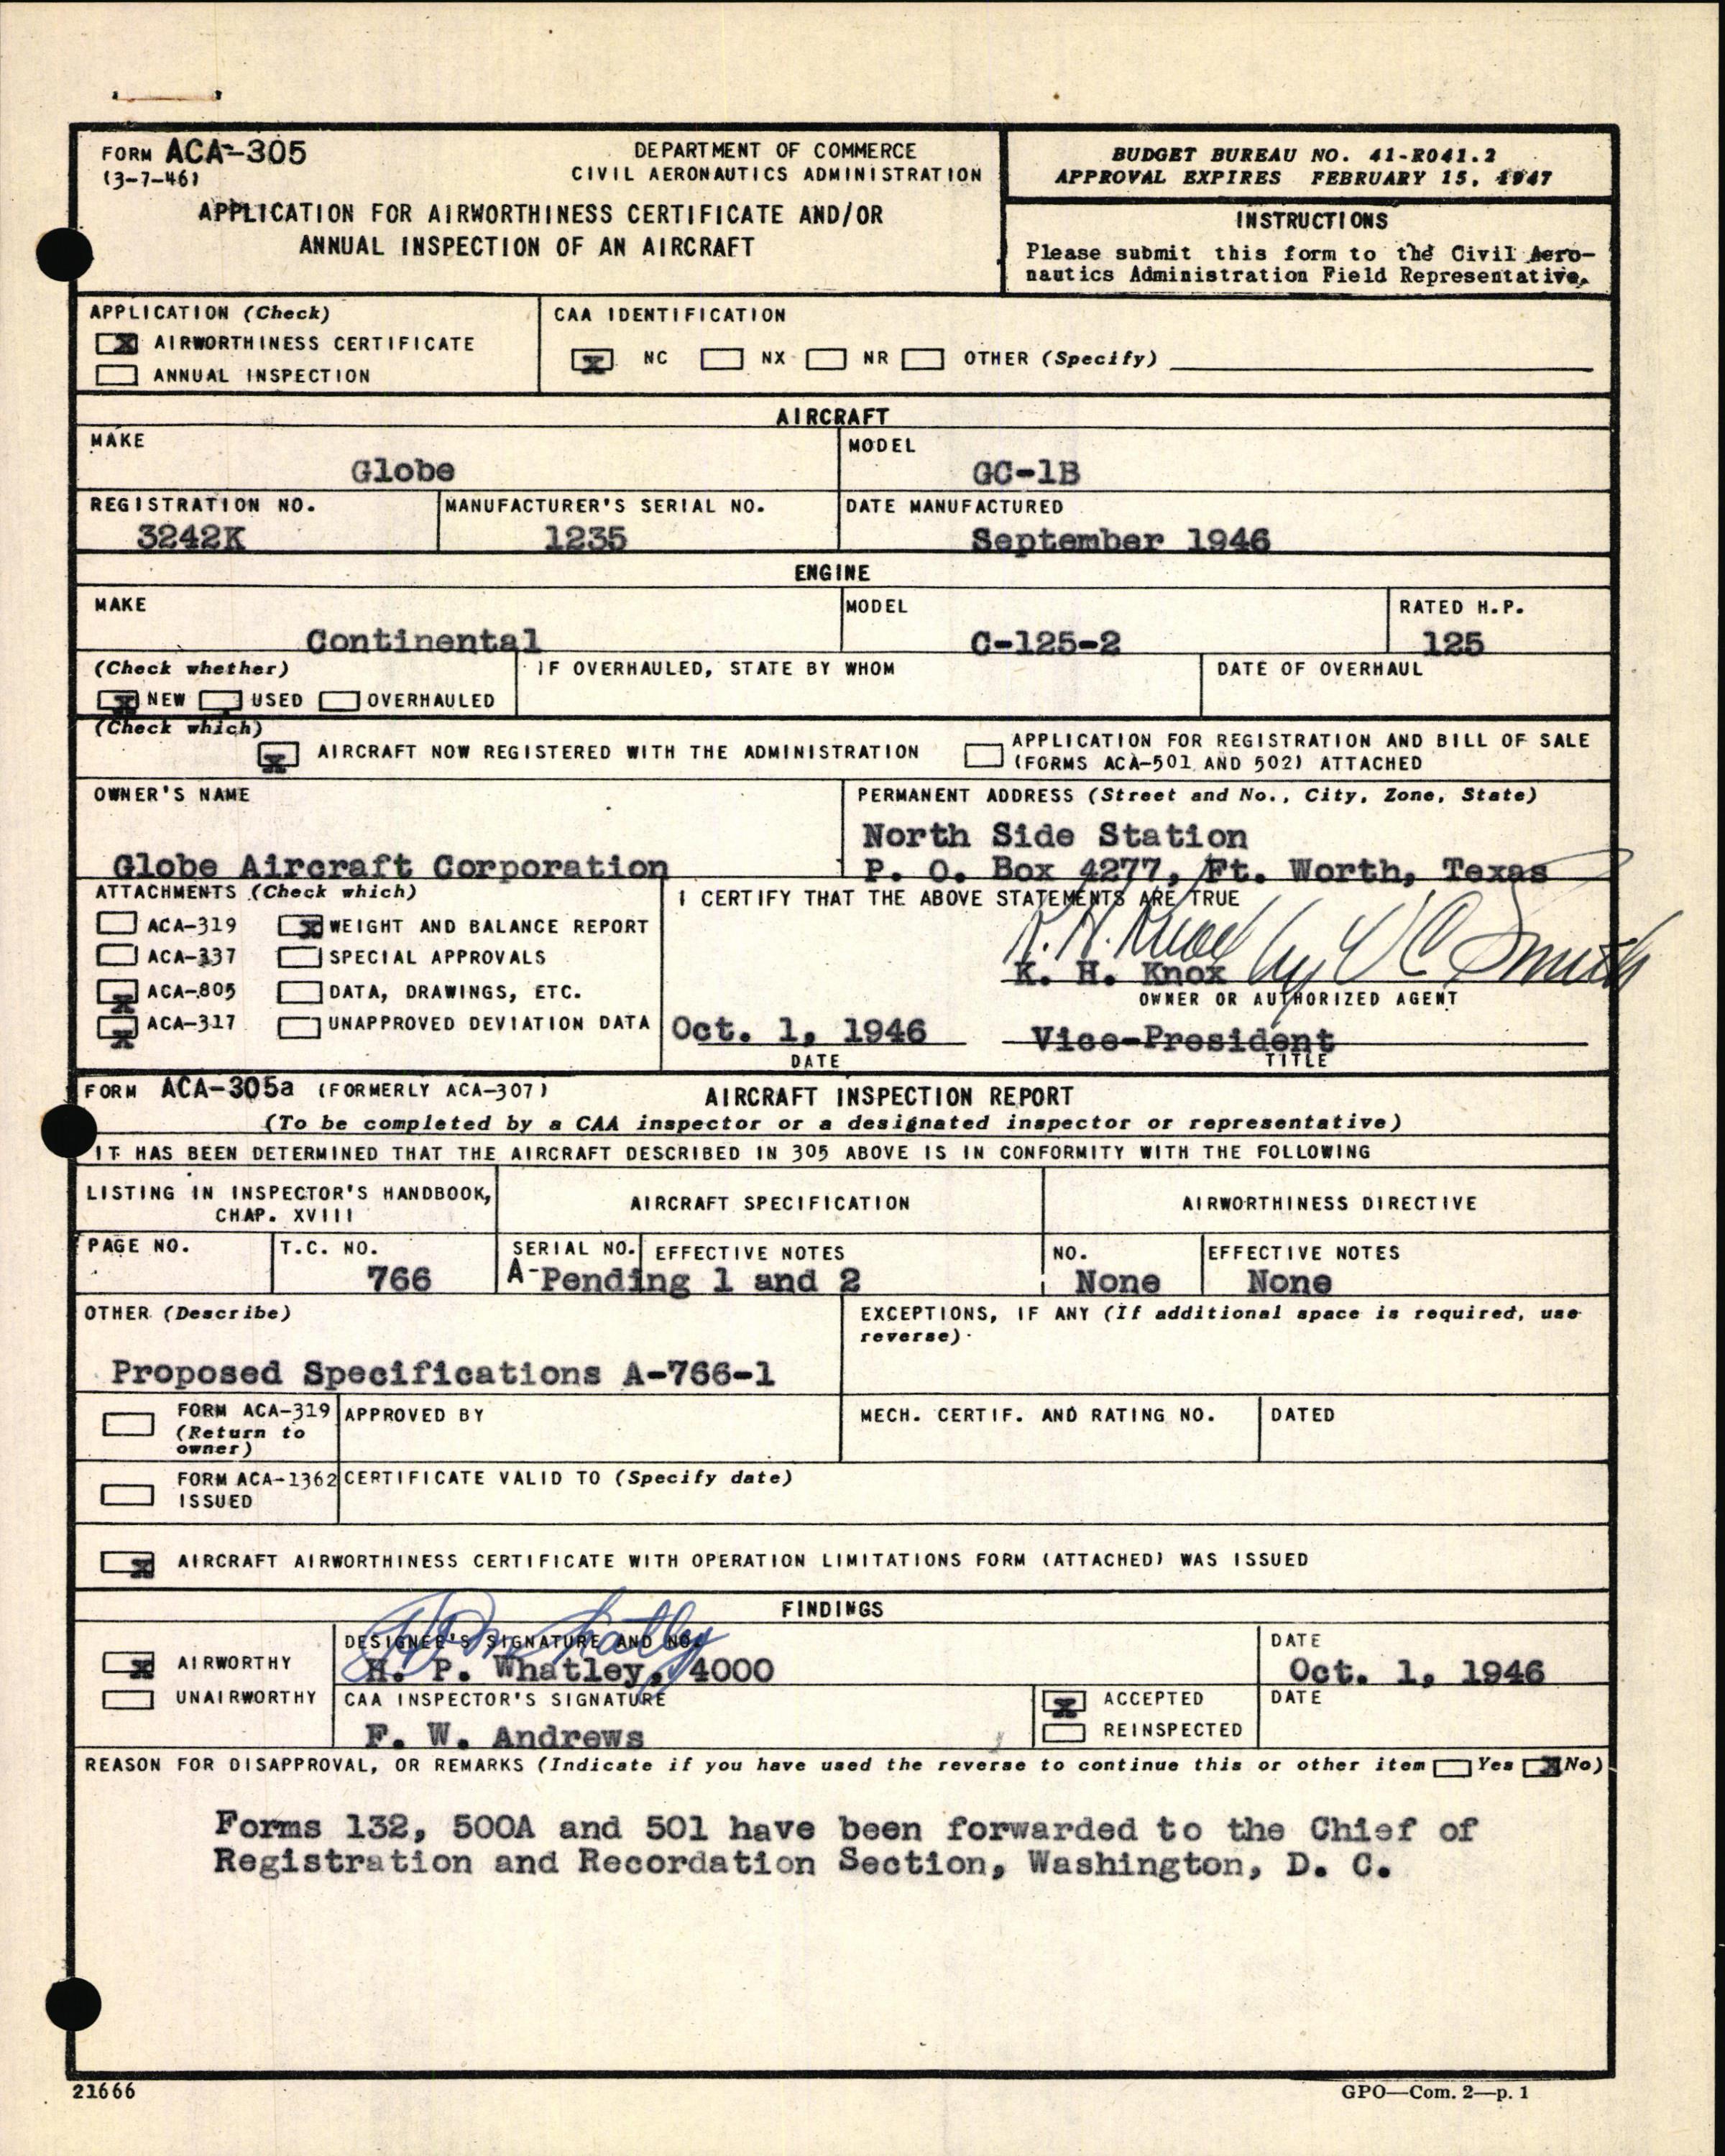 FORM ACA-305
(3-7-46)
DEPARTMENT OF COMMERCE
CIVIL AERONAUTICS ADMINISTRATION
APPLICATION FOR AIRWORTHINESS CERTIFICATE AND/OR
ANNUAL INSPECTION OF AN AIRCRAFT
BUDGET BUREAU NO. 41-R041.2
APPROVAL EXPIRES FEBRUARY 15, 1947
INSTRUCTIONS
Please submit this form to the Civil Aero-
nautics Administration Field Representative.
APPLICATION (Check)
X AIRWORTHINESS CERTIFICATE
ANNUAL INSPECTION
CAA IDENTIFICATION
X NC NX NR OTHER (Specify)
AIRCRAFT
MAKE
Globe
MODEL
GC-1B
REGISTRATION NO.
3242K
MANUFACTURER'S SERIAL NO.
1235
DATE MANUFACTURED
September 1946
ENGINE
MAKE
Continental
MODEL
C-125-2
RATED H.P.
125
(Check whether)
X NEW USED OVERHAULED
IF OVERHAULED, STATE BY WHOM
DATE OF OVERHAUL
(Check which)
X AIRCRAFT NOW REGISTERED WITH THE ADMINISTRATION
APPLICATION FOR REGISTRATION AND BILL OF SALE
(FORMS ACA-501 AND 502) ATTACHED
OWNER'S NAME
Globe Aircraft Corporation
PERMANENT ADDRESS (Street and No., City, Zone, State)
North Side Station
P. O. Box 4277, Ft. Worth, Texas
ATTACHMENTS (Check which)
ACA-319 X WEIGHT AND BALANCE REPORT
ACA-337 SPECIAL APPROVALS
X ACA-805 DATA, DRAWINGS, ETC.
X ACA-317 UNAPPROVED DEVIATION DATA
I CERTIFY THAT THE ABOVE STATEMENTS ARE TRUE
K. H. Knox by V C Smith
K. H. Knox
OWNER OR AUTHORIZED AGENT
Oct. 1, 1946 Vice-President
DATE TITLE
FORM ACA-305a (FORMERLY ACA-307) AIRCRAFT INSPECTION REPORT
(To be completed by a CAA inspector or a designated inspector or representative)
IT HAS BEEN DETERMINED THAT THE AIRCRAFT DESCRIBED IN 305 ABOVE IS IN CONFORMITY WITH THE FOLLOWING
LISTING IN INSPECTOR'S HANDBOOK,
CHAP. XVIII
AIRCRAFT SPECIFICATION
AIRWORTHINESS DIRECTIVE
PAGE NO.
T.C. NO.
766
SERIAL NO. EFFECTIVE NOTES
A-Pending 1 and 2
NO.
None
EFFECTIVE NOTES
None
OTHER (Describe)
Proposed Specifications A-766-1
EXCEPTIONS, IF ANY (If additional space is required, use
reverse)
FORM ACA-319
(Return to
owner)
APPROVED BY
MECH. CERTIF. AND RATING NO.
DATED
FORM ACA-1362
ISSUED
CERTIFICATE VALID TO (Specify date)
X AIRCRAFT AIRWORTHINESS CERTIFICATE WITH OPERATION LIMITATIONS FORM (ATTACHED) WAS ISSUED
FINDINGS
X AIRWORTHY
UNAIRWORTHY
DESIGNEE'S SIGNATURE AND NO.
H P Whatley
H. P. Whatley, 4000
DATE
Oct. 1, 1946
CAA INSPECTOR'S SIGNATURE
F. W. Andrews
X ACCEPTED
REINSPECTED
DATE
REASON FOR DISAPPROVAL, OR REMARKS (Indicate if you have used the reverse to continue this or other item Yes X No)
Forms 132, 500A and 501 have been forwarded to the Chief of
Registration and Recordation Section, Washington, D. C.
21666
GPO—Com. 2—p. 1